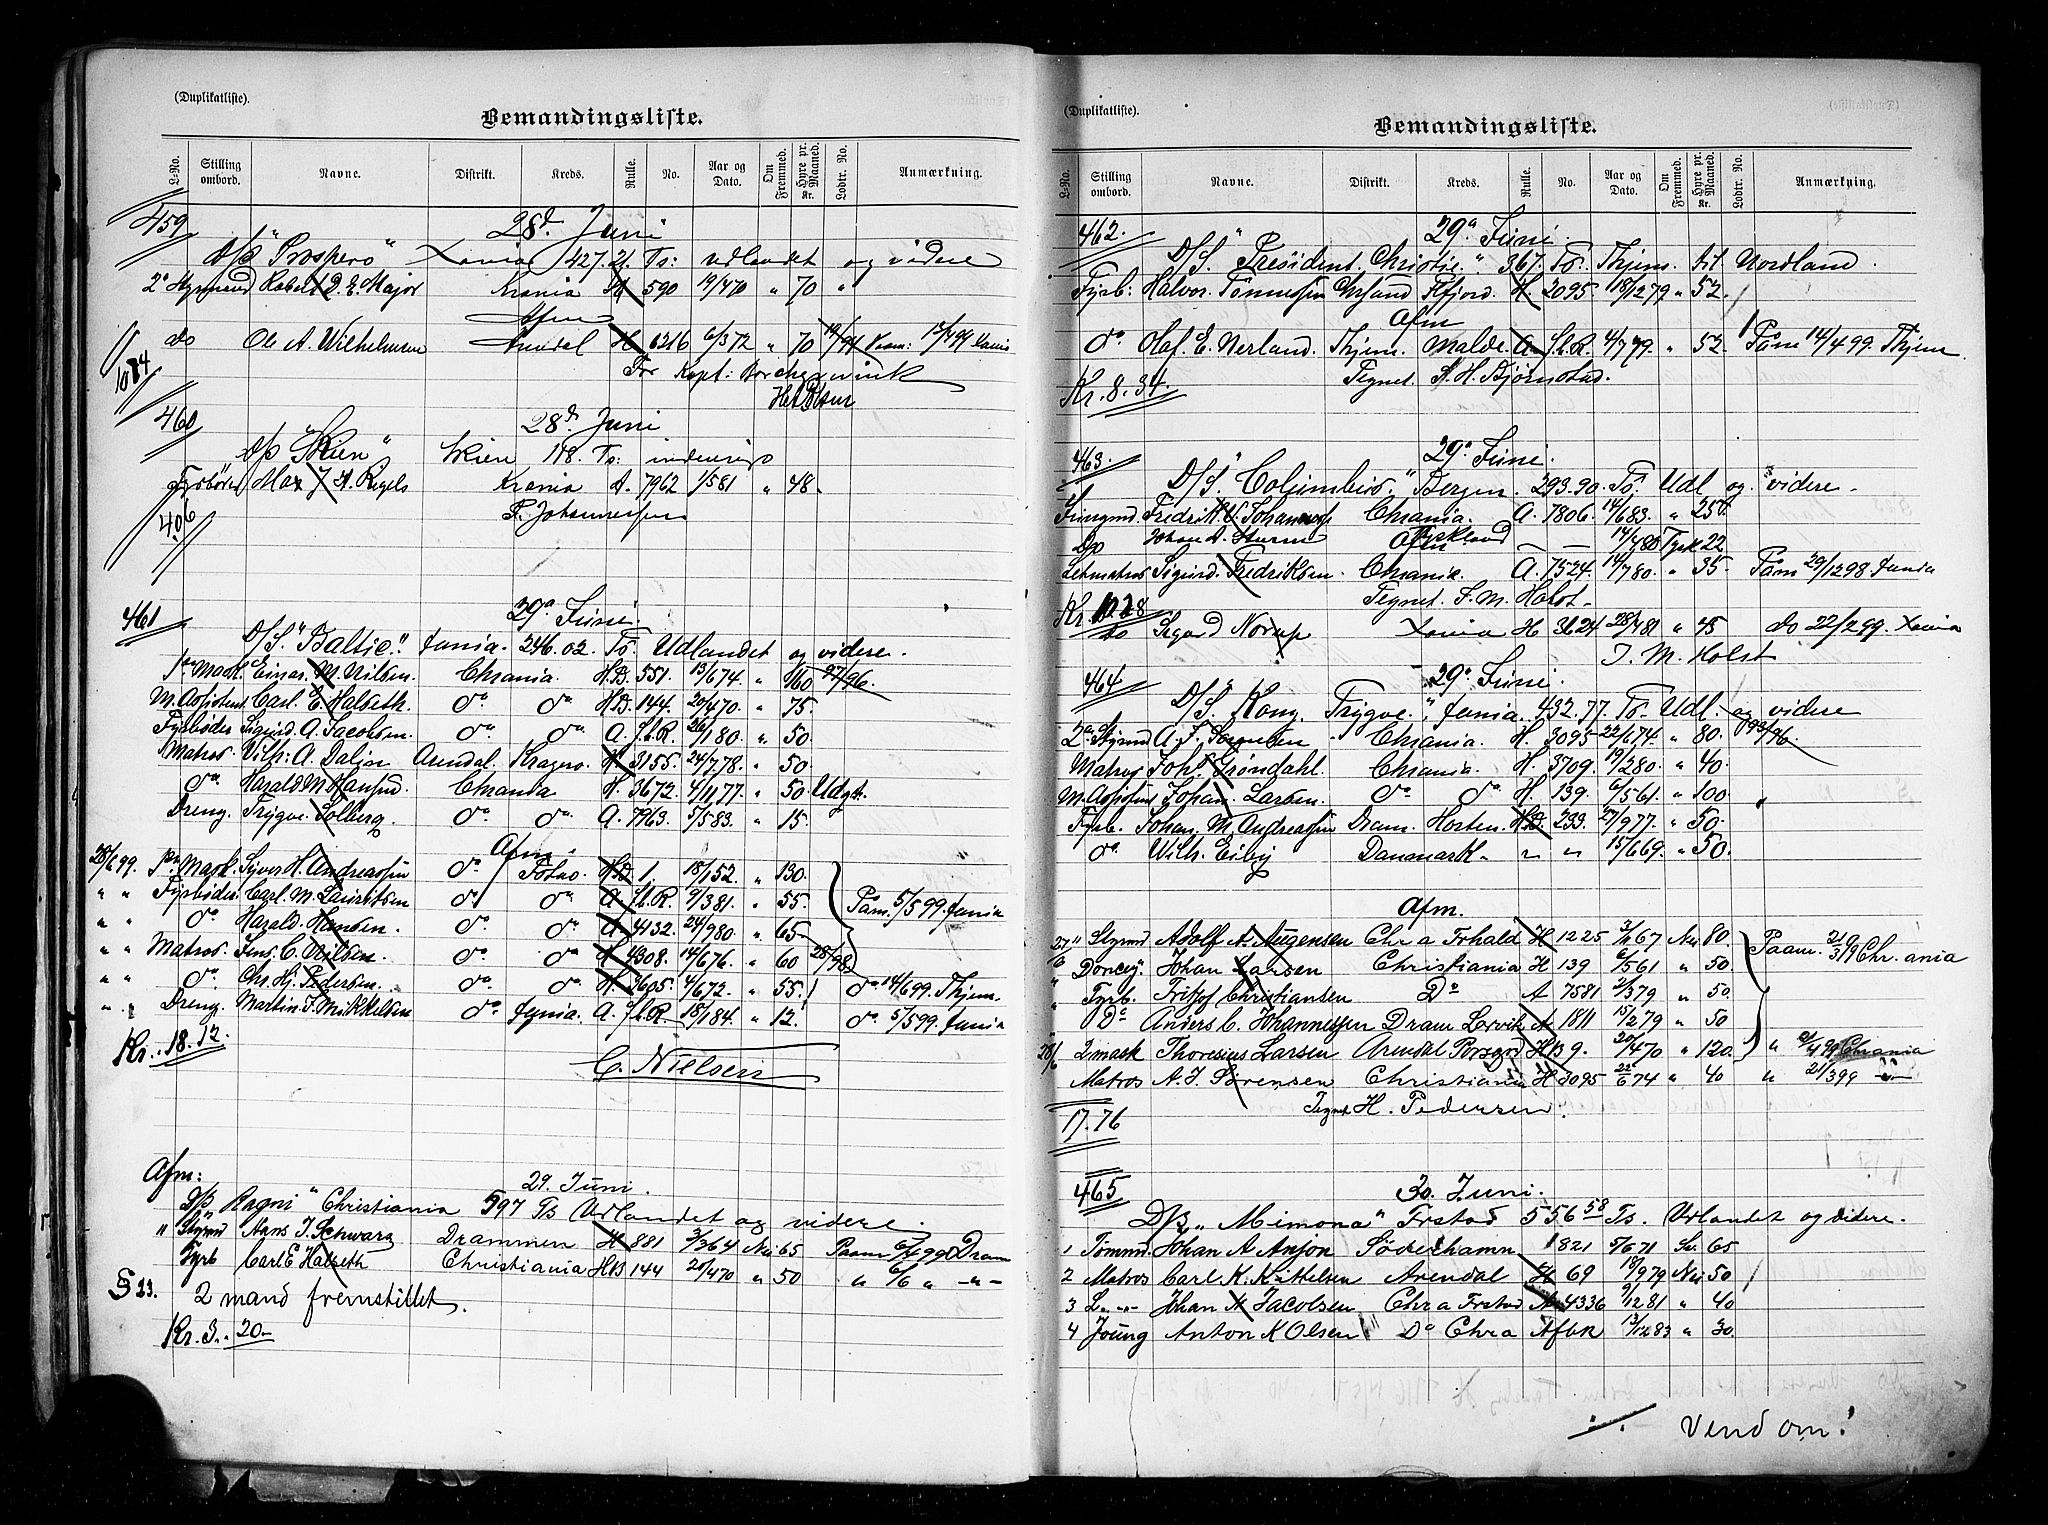 (Duplikatliste).
Bemandingsliste.
L-No. Stilling ombord. Navne. Distrikt. Kreds. Rulle. No. Aar og Dato. Om Fremmed. Hyre pr. Maaned. Kr. Lodtr. No. Anmærkning.
459 28d Juni
D/S "Prospero" Xania 427.21 Ts: udlandet og videre
2' Robert D. E. Major Krania 590 19/470 " 70 "
Afm
do Ole A. Wilhelmsen Arendal H 6216 6/372 " 70
For Kapt:
1084
460 28d Juni
D/S "Skien" Skien 178. Ts: indenrigs
Fyrbøder Max J. A. Rigels Krania A. 7962 1/581 " 48.
P. Johannessen
406
461 29a Juni.
D/S. "Baltic". Xania. 246.02. To. Udlandet og videre.
1ste Mask. Einar M. Nilsen. Chrania. H.B. 551. 13/674. " 160 27/96.
M. Assistent Carl E. Halseth. do do H.B. 144. 20/470. " 75.
Fyrbøder Sigurd A. Jacobsen. do do A. f.l.R. 26/180. " 50.
Matros. Vilh: A. Dalin Arendal. Kragerø. H. 3155. 24/778. " 50.
do Harald M. Hansen. Chrania do H. 3672. 4/1177. " 50 Udgt.
Dreng. Trygve Solberg. do do A. 7963. 5/583. " 15.
Afm.
28/6 99. 1ste Mask. Syver H. Andreassen do Fosto. H.B. 1. 18/152. " 130
" " Fyrbøder. Carl. M. Lauritsen do do A. f.l.R. 9/381. " 55. Paam. 5/5 99. Xania
" " do Harald. Hansen. do do A. 4132. 24/980. " 65
" " Matros. Jens. C. Nilsen. do do A. 4308. 14/676. " 60 28/98
" " do Chr. Hj. Pedersen. do do H. 3605. 4/672. " 55. do 14/6 99. Thjem.
" " Dreng. Martin F. Mikkelsen do Xania. A. f.l.R. 18/184. " 12. do 5/5 99. Xania
Kr. 18.12.
C. Nielsen
Afm: 29. Juni.
D/S "Ragni" Christiania 597 Ts Udlandet og videre.
" Styrmd Hans J. Schwarz Drammen H 881 3/364 Nei 65 Paam 6/4 99 Dram
Fyrb Carl E Halseth Christiania HB 144 20/470 " 50 " 6/6 " -"-
§ 23. 2 mand fremstillet.
Kr. 3.20-
(Duplikatliste).
Bemandingsliste.
L-No. Stilling ombord. Navne. Distrikt. Kreds. Rulle. No. Aar og Dato. Om Fremmed. Hyre pr. Maaned. Kr. Lodtr. No. Anmærkning.
462. 29a Juni.
D/S. "Præsident Christie." 367. To. Thjem. til Nordland.
Fyrb: Halvor. Tønnessen Chrsand Ffjord. H. 2095. 18/1279 " 52.
Afm
do Olaf. E. Nerland. Thjem. Malde. A. f.l.R. 4/779. " 52. Paam 14/4 99. Thjem.
Tegnet. S. H. Bjørnstad.
Kr. 8.34.
463. 29a Juni.
D/S. "Columbus." Bergen. 293.90. To. Udl og videre.
Jungmd. Fredrik V. Johannesen Chrania. A. 7806. 14/683. " 25
Do Johan A. Sturm Tyskland — — 14/480 Tysk 22
Afm
Letmatros Sigurd. Fredriksen. Chrania. A. 7524. 14/780. " 35. Paam 29/12 98. Xania
Tegnet. J. M. Holst.
Kr.
do Sigurd Norup Xania H 3624 28/481 " 45 do 22/2 99. Xania
J. M. Holst
464 29a Juni.
D/S. "Kong. Trygve." Xania. 432.77. To. Udl. og videre
2den Styrmd A. J. Sørensen Chrania. H. 3095. 22/674. " 80. 98/96.
Matros Johs. Grøndahl. Chrania. H. 3709. 19/280. " 40.
M. Assistent Johan. Larsen. do do H. 139. 6/561. " 100
Fyrb. Johan. M. Andreassen Dram. Horten. H.B. 233. 27/977. " 50.
do Wilh. Eiby Danmark - " " 15/669. " 50.
Afm.
27/6 " Styrmd Adolf A. Augensen Chra Frhald H 1225 3/1167 Nei 80 Paam. 21/3 99 Chr.ania
" Donkey. Johan Larsen Christiania H 139 6/561 " 50
" Fyrb. Fritjof Christiansen Do A 7581 2/379 " 50
Do Anders C. Johannessen Dram Larvik A 1811 15/279 " 50
28/6 2 mask Thoresius Larsen Arendal Porsgrd HB 9. 20/470 " 120. " Chrania
Matros A. J. Sørensen Christiania H 3095 22/674 " 40 " 21/3 99 -"-
Tegnet H. Pedersen.
17.76
465 30. Juni.
D/S "Mimona" Frstad 556 58 Ts. Udlandet og videre.
1 Tømmd Johan A Anjon Söderhamn 1821 5/671 Sv. 65
2 Matros Carl K. Kittelsen Arendal H 69 18/979 Nei 50
3 L. -"- Johan M Jacobsen Chra Frstad A 4336 9/1281 " 40
4 Joung Anton K Olsen Do Chra Afbk 13/1283 " 30.
./. Vend om!